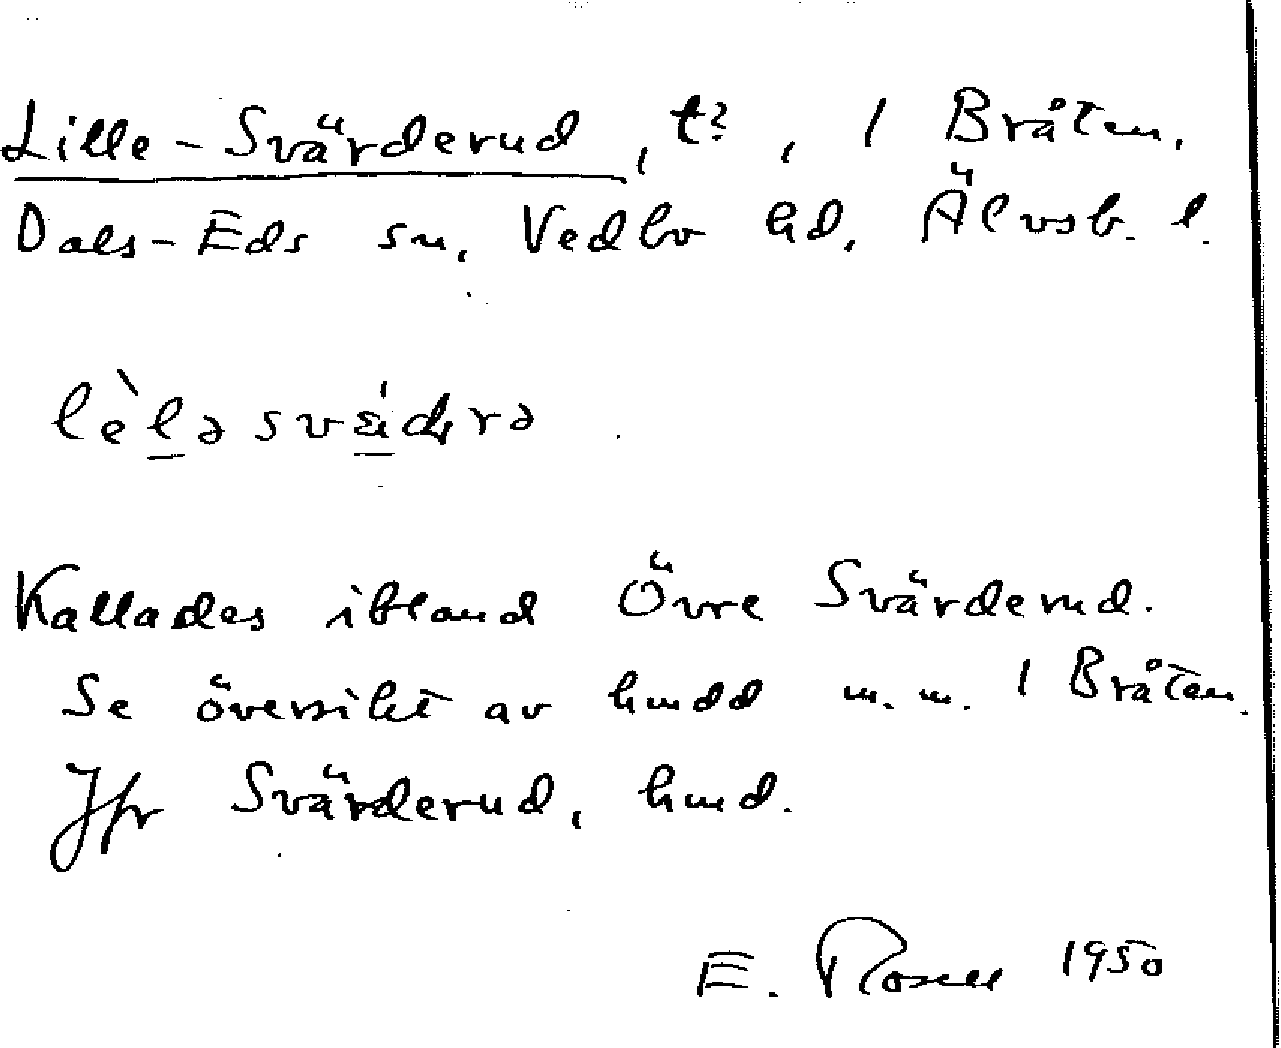 Lille-Svärderud, t?, 1 Bråten,
Dals-Eds sn, Vedbo hd, Älvsb. l.
Kallades ibland Övre Svärderud.
Se översikt av hmdd m.m. 1 Bråten.
Jfr Svärderud, hmd.
E. Rosell 1950